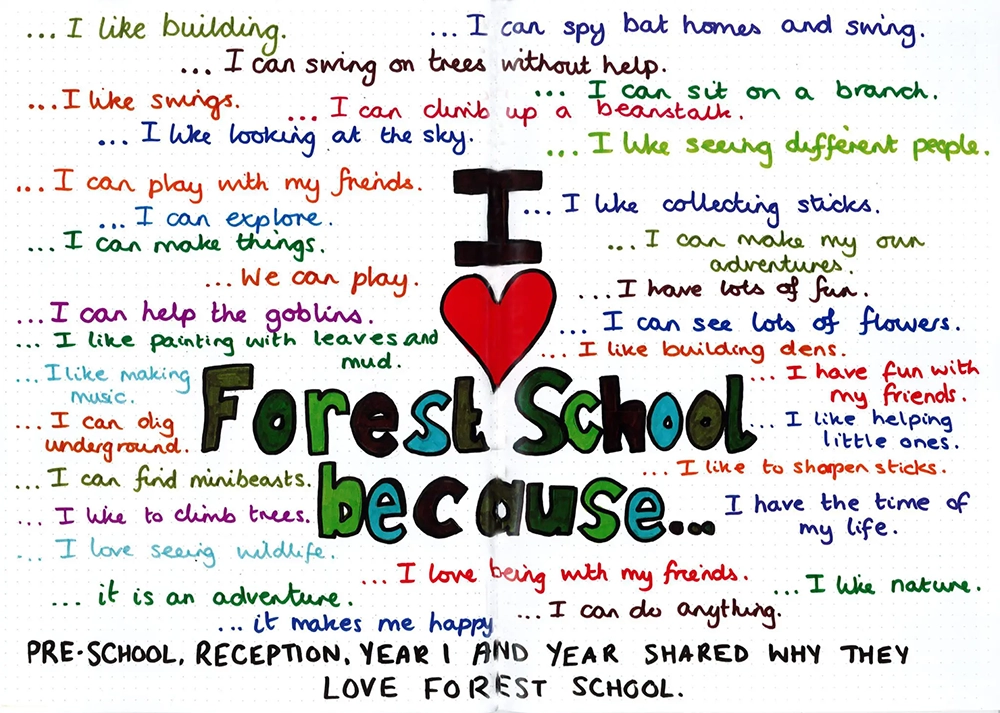 ... I like building.
... I can spy bat homes and swing.
... I can swing on trees without help.
... I can sit on a branch.
... I like swings.
... I can climb up a beanstalk.
... I like looking at the sky.
... I like seeing different people.
... I can play with my friends.
I
... I like collecting sticks.
... I can explore.
... I can make things.
... I can make my own
adventures.
... We can play.
... I have lots of fun.
... I can help the goblins.
... I can see lots of flowers.
... I like painting with leaves and
mud.
... I like building dens.
... I like making
music.
... I have fun with
my friends.
Forest School
... I can dig
underground.
... I like helping
little ones.
... I can find minibeasts.
... I like to sharpen sticks.
because...
... I like to climb trees.
... I have the time of
my life.
... I love seeing wildlife.
... I love being with my friends.
... I like nature.
... it is an adventure.
... I can do anything.
... it makes me happy
PRE-SCHOOL, RECEPTION, YEAR 1 AND YEAR SHARED WHY THEY
LOVE FOREST SCHOOL.